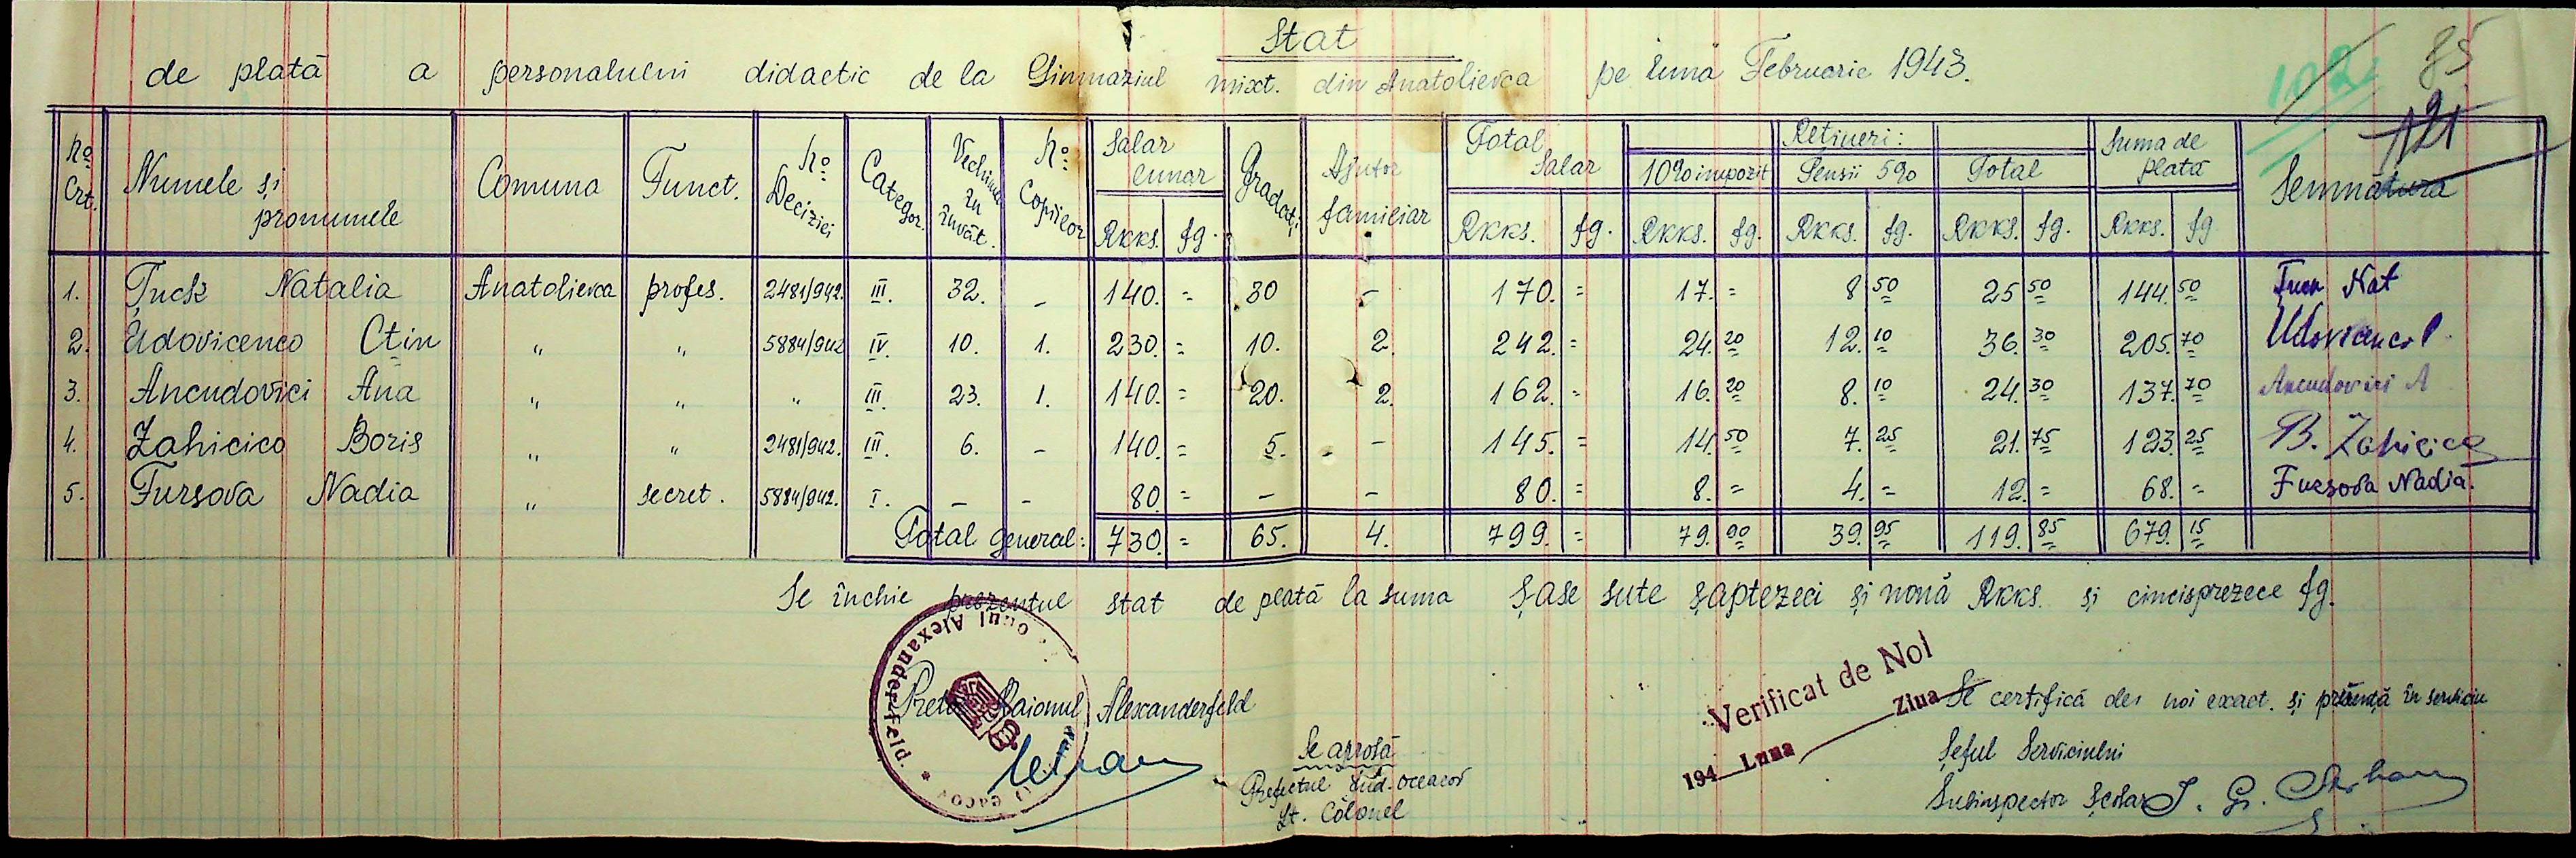 Stat
de plată a personalului didactic de la Gimnaziul mixt. din Anatolievca pe luna Februarie 1943.
102
85
121
No. Crt. Numele și pronumele Comuna Funct. No. Deciziei Categor. Vechimea în învăt. No. Copiilor Salar lunar Gradați Ajutor familiar Total Salar Rețineri: Suma de plată Semnătura
10% impozit Pensii 5% Total
Rkks. fg. Rkks. fg. Rkks. fg. Rkks. fg. Rkks. fg. Rkks. fg
1. Țuck Natalia Anatolievca profes. 2481/942. III. 32. - 140. = 30 - 170. = 17. = 8 50 25 50 144. 50 Țuck Nat
2. Udovicenco Ctin " " 5884/942 IV. 10. 1. 230. = 10. 2. 242. = 24. 20 12. 10 36. 30 205. 70
3. Ancudovici Ana " " " III. 23. 1. 140. = 20. 2. 162. = 16. 20 8. 10 24. 30 137. 70 Ancudovici A
4. Zahicico Boris " " 2481/942. III. 6. - 140. = 5. - 145. = 14. 50 7. 25 21. 75 123. 25 B. Zahicico
5. Fursova Nadia " secret. 5884/942. I. - - 80 = - - 80. = 8. = 4. = 12. = 68. = Fursova Nadia.
Total general: 730. = 65. 4. 799. = 79. 90 39. 95 119. 85 679. 15
Se închie prezentul stat de plată la suma Șase sute șaptezeci și nouă Rkks. și cincisprezece fg.
onul Alexanderfeld.
Raionul Alexanderfeld
Se aprobă
Prefectul Jud. Oceacov
Lt. Colonel
Verificat de Noi
194 Luna Ziua
Se certifică de noi exact. și prezență în serviciu
Șeful Serviciului
Subinspector Școlar